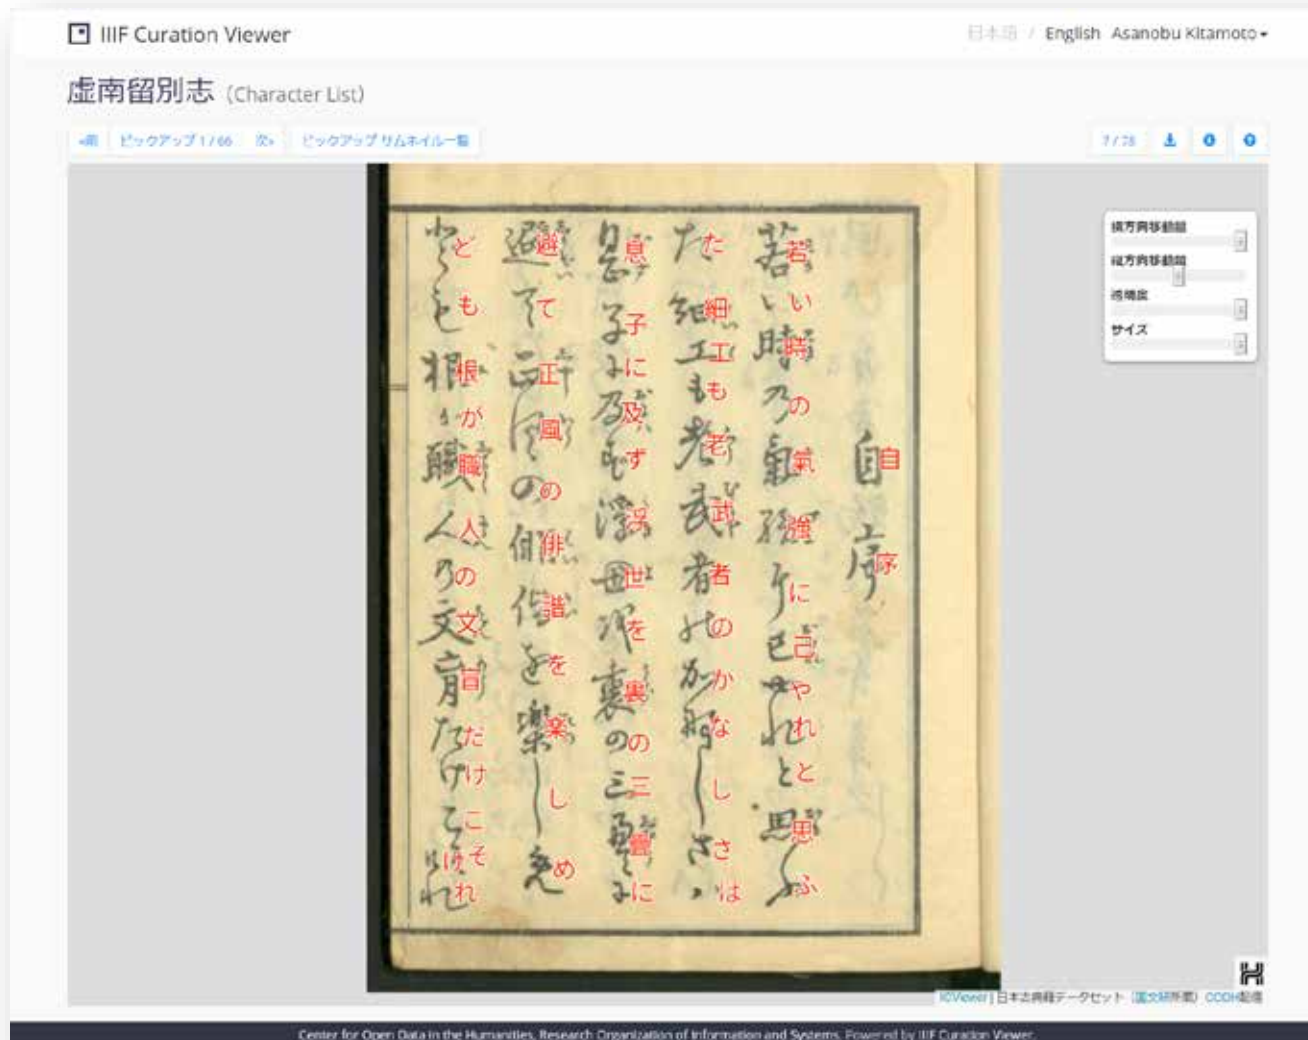 IIIF Curation Viewer
日本語 / English Asanobu Kitamoto
虚南留別志 (Character List)
«前 ピックアップ 1 / 66 次» ピックアップ サムネイル一覧
7 / 78
横方向移動量
縦方向移動量
透明度
サイズ
自序
若い時の氣強に己やれと思ふ
た細工も老武者のかなしさは
息子に及ず浮世を裏の三疊に
避て正風の俳諧を楽しめ
ども根が職人の文盲だけこそけれ
ICViewer | 日本古典籍データセット(国文研所蔵)CODH配信
Center for Open Data in the Humanities, Research Organization of Information and Systems. Powered by IIIF Curation Viewer.